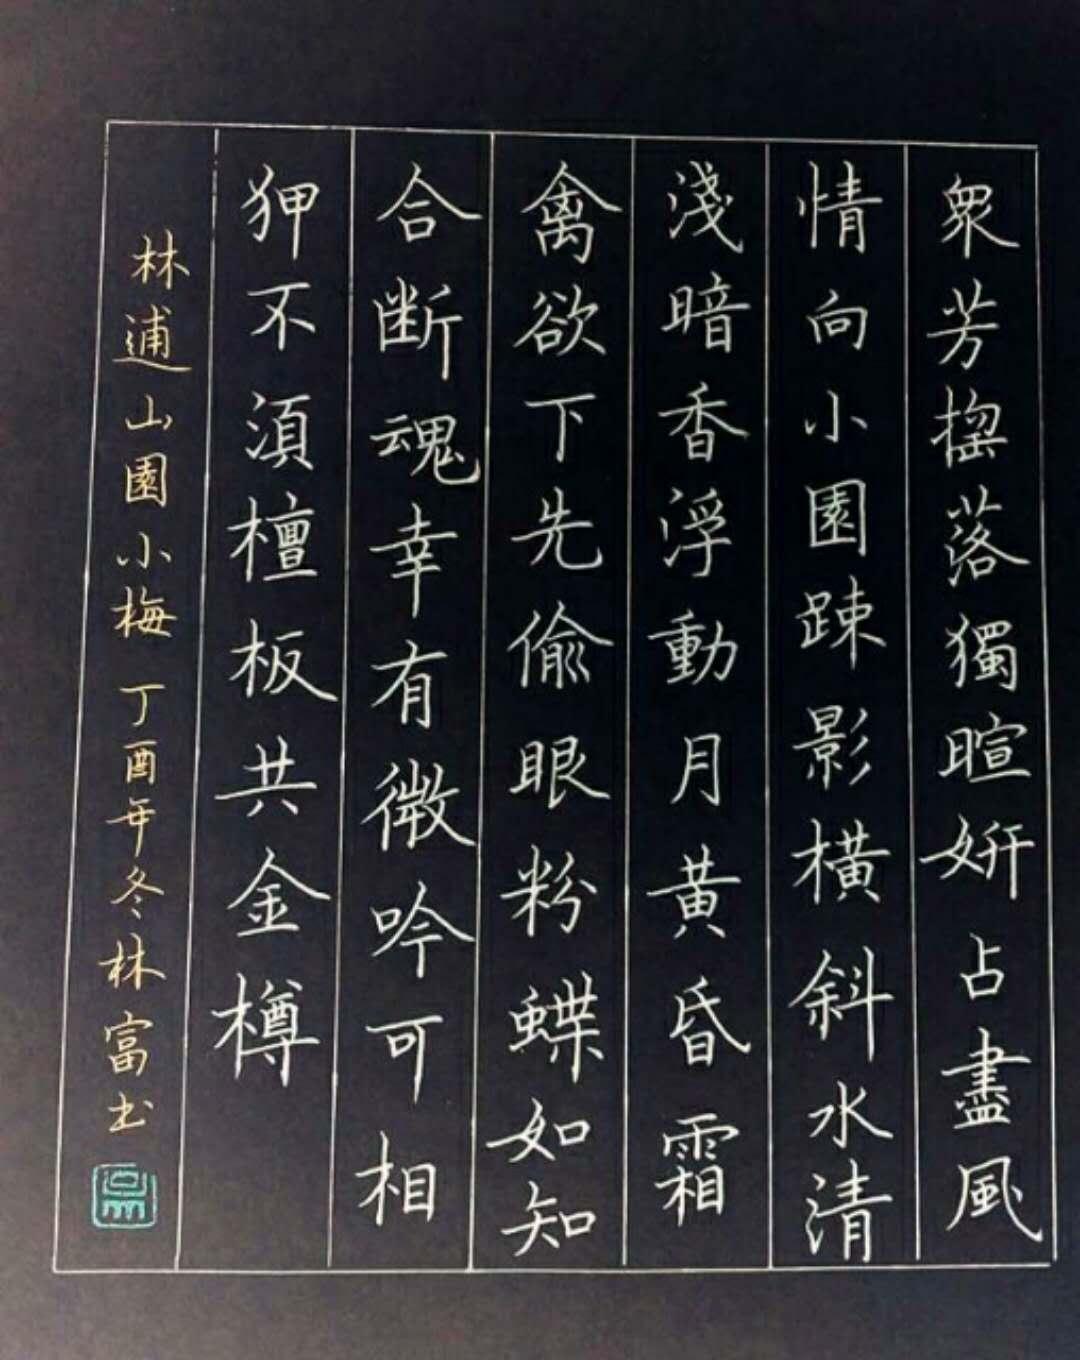 眾芳摇落獨暄妍占盡風
情向小園踈影橫斜水清
淺暗香浮動月黃昏霜
禽欲下先偷眼粉蝶如知
合断魂幸有微吟可相
狎不湏檀板共金樽
林逋山園小梅丁酉年冬林富书